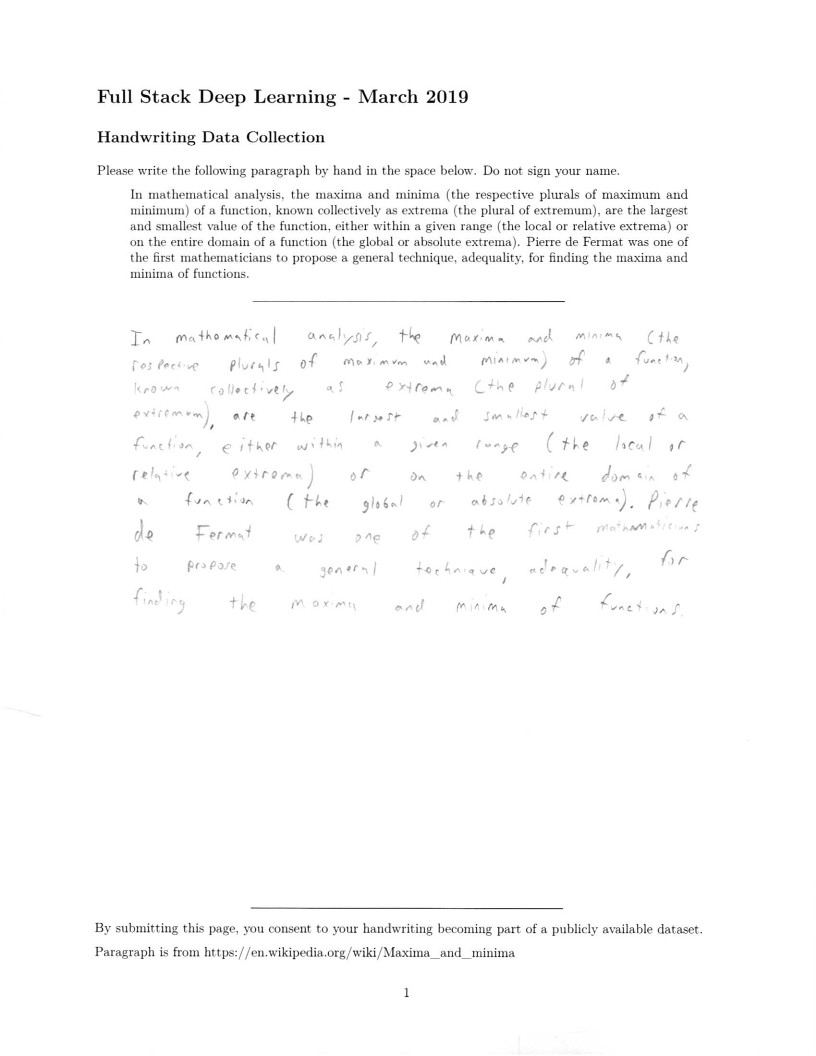 Full Stack Deep Learning - March 2019
Handwriting Data Collection
Please write the following paragraph by hand in the space below. Do not sign your name.
In mathematical analysis, the maxima and minima (the respective plurals of maximum and
minimum) of a function, known collectively as extrema (the plural of extremum), are the largest
and smallest value of the function, either within a given range (the local or relative extrema) or
on the entire domain of a function (the global or absolute extrema). Pierre de Fermat was one of
the first mathematicians to propose a general technique, adequality, for finding the maxima and
minima of functions.
In mathematical analysis, the maxima and minima (the
respective plurals of maximum and minimum) of a function,
known collectively as extrema (the plural of
extremum), are the largest and smallest value of a
function, either within a given range (the local or
relative extrema) or on the entire domain of
a function (the global or absolute extrema). Pierre
de Fermat was one of the first mathematicians
to propose a general technique, adequality, for
finding the maxima and minima of functions.
By submitting this page, you consent to your handwriting becoming part of a publicly available dataset.
Paragraph is from https://en.wikipedia.org/wiki/Maxima_and_minima
1